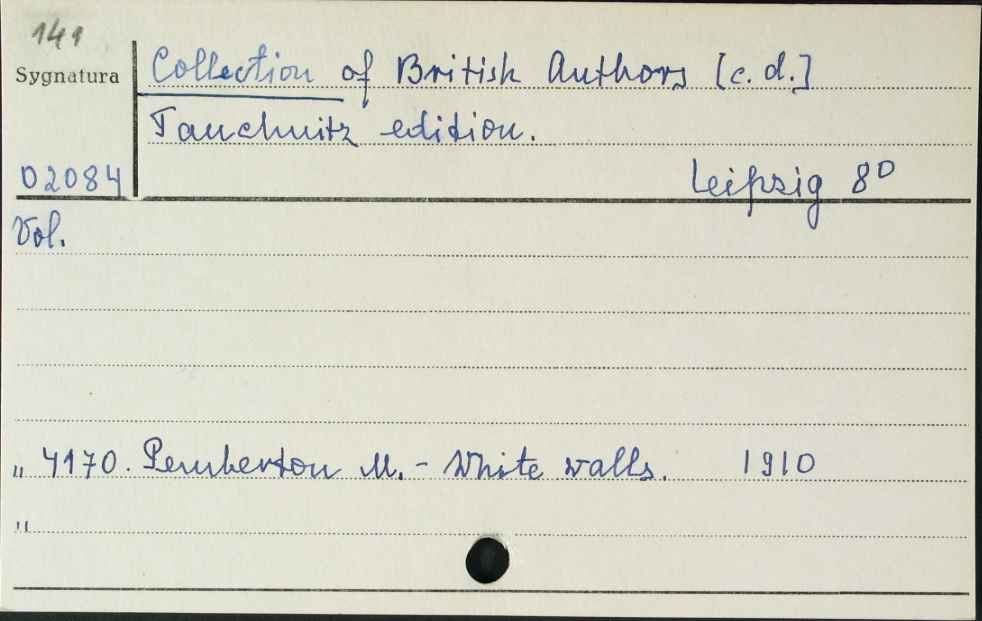 141
Sygnatura
Collection of British Authors [c.d.]
Tauchnitz edition.
02084
Leipzig 8°
Vol.
" 4170. Pemberton M. - White walls. 1910
"